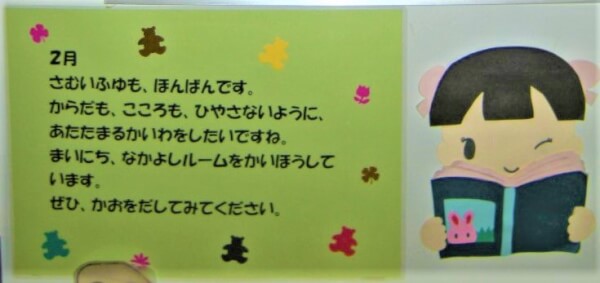 2月
さむいふゆも、ほんばんです。
からだも、こころも、ひやさないように、
あたたまるかいわをしたいですね。
まいにち、なかよしルームをかいほうして
います。
ぜひ、かおをだしてみてください。